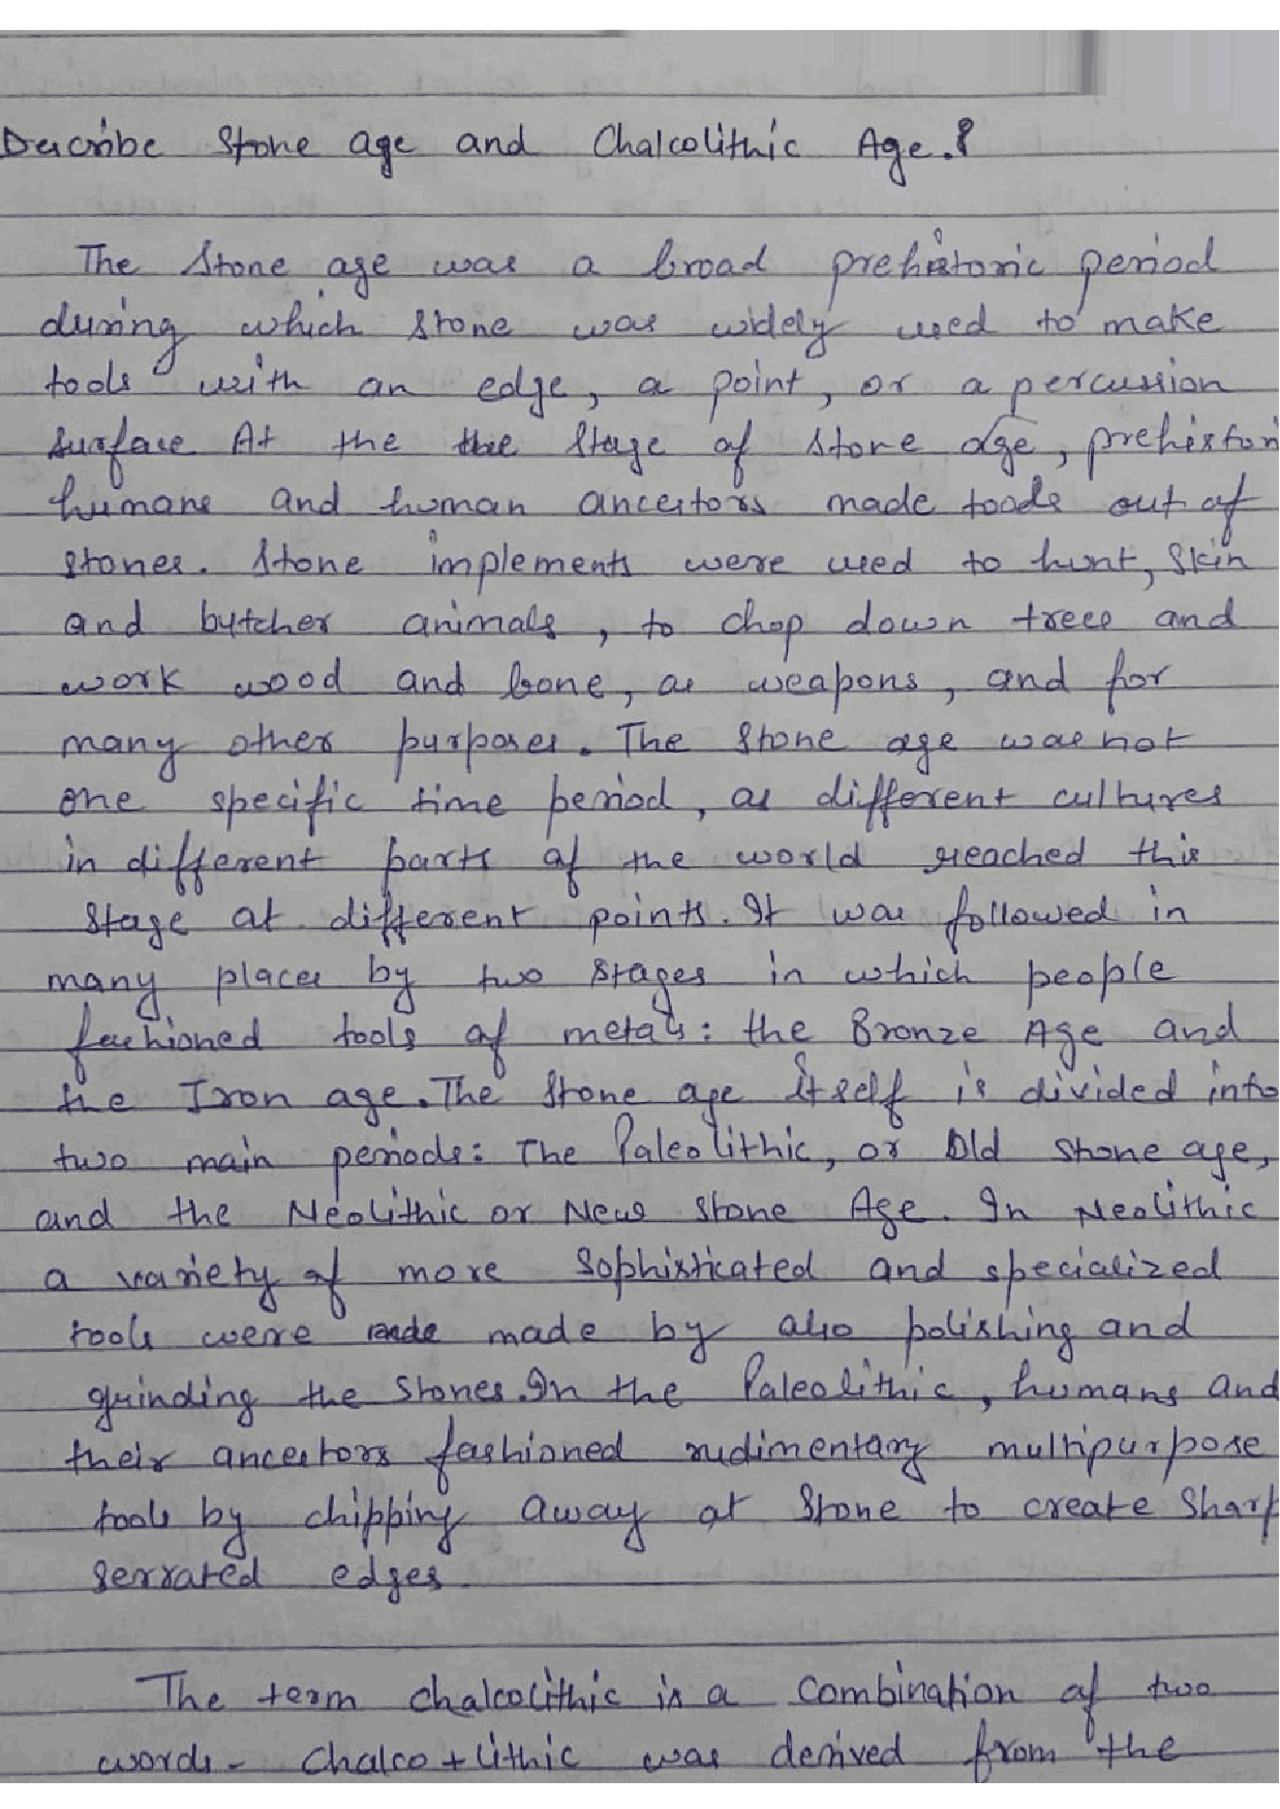 Describe Stone age and Chalcolithic Age.?
The Stone age was a broad prehistoric period
during which stone was widely used to make
tools with an edge, a point, or a percussion
surface At the the Stage of Stone age, prehistori
humans and human ancestors made tools out of
stones. Stone implements were used to hunt, Skin
and butcher animals, to chop down trees and
work wood and bone, as weapons, and for
many other purposes. The Stone age was not
one specific time period, as different cultures
in different parts of the world reached this
Stage at different points. It was followed in
many places by two stages in which people
fashioned tools of metals: the Bronze Age and
the Iron age. The Stone age itself is divided into
two main periods: The Paleolithic, or Old Stone age,
and the Neolithic or New Stone Age. In Neolithic
a variety of more Sophisticated and specialized
tools were made made by also polishing and
grinding the Stones. In the Paleolithic, humans and
their ancestors fashioned rudimentary multipurpose
tools by chipping away at Stone to create Sharp
serrated edges.
The term chalcolithic is a Combination of two
words - Chalco + Lithic was derived from the